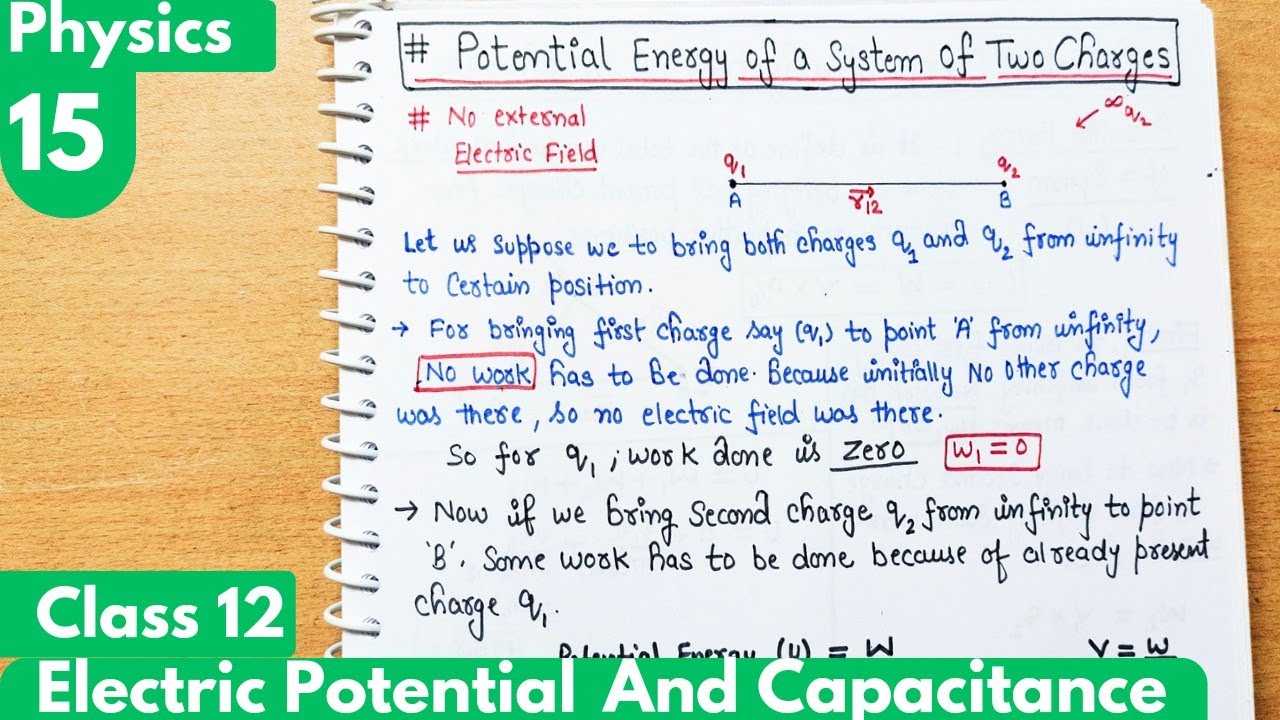 Physics
15
# Potential Energy of a System of Two Charges
# No external
Electric Field
∞ q2
q1
q2
A
r12
B
Let us suppose we to bring both charges q1 and q2 from infinity
to Certain position.
→ For bringing first charge say (q1) to point 'A' from infinity,
No work has to be done. Because initially No other charge
was there, so no electric field was there.
So for q1; work done is zero W1 = 0
→ Now if we bring second charge q2 from infinity to point
'B'. Some work has to be done because of already present
charge q1.
Potential Energy (U) = W V = W
Class 12
Electric Potential And Capacitance